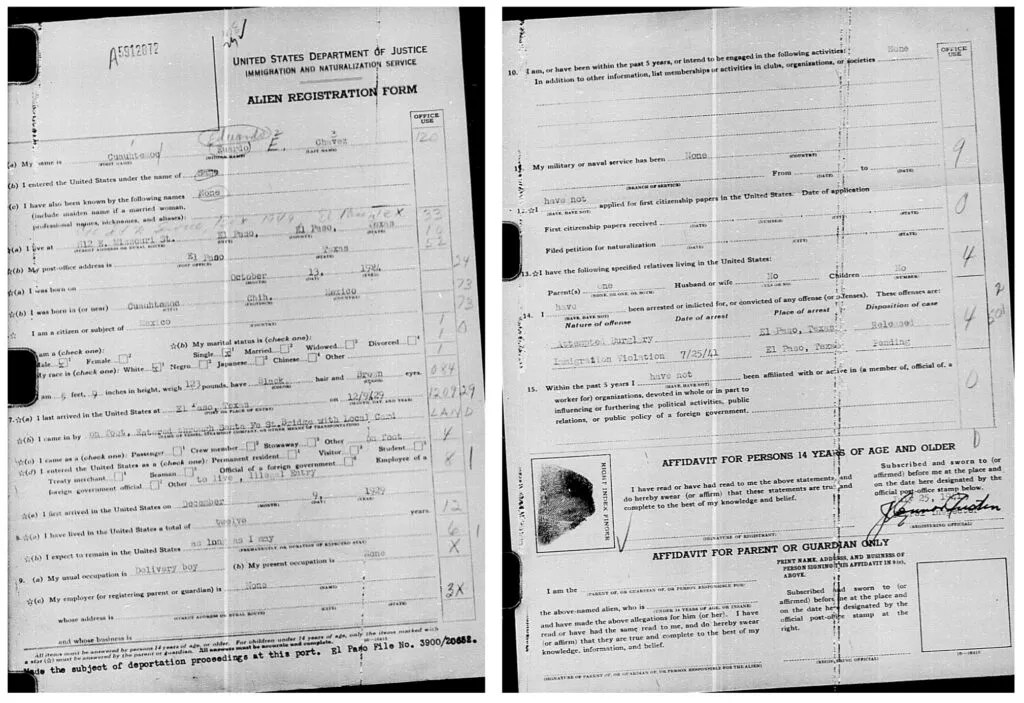 A5912072
UNITED STATES DEPARTMENT OF JUSTICE
IMMIGRATION AND NATURALIZATION SERVICE
ALIEN REGISTRATION FORM
OFFICE USE
120
Eduardo
(a) My name is Cuauhtemoc E. Chavez
(FIRST NAME) (MIDDLE NAME) (LAST NAME)
(b) I entered the United States under the name of Same
(c) I have also been known by the following names None
(include maiden name if a married woman,
professional names, nicknames, and aliases):
33
(a) I live at 812 E. Missouri St. El Paso, El Paso, Texas
(b) My post-office address is El Paso Texas
52
(a) I was born on October 13, 1924
24
(b) I was born in (or near) Cuauhtemoc Chih. Mexico
73
I am a citizen or subject of Mexico
73
(COUNTRY)
am a (check one): (b) My marital status is (check one):
Male x Female Single x Married Widowed Divorced
My race is (check one): White x Negro Japanese Chinese Other
am 5 feet, 9 inches in height, weigh 123 pounds, have Black hair and Brown eyes.
084
7. (a) I last arrived in the United States at El Paso, Texas on 12/9/29
120929
(b) I came in by on foot, Entered through Santa Fe St. Bridge with Local Card
LAND
(c) I came as a (check one): Passenger Crew member Stowaway Other on foot
4
(d) I entered the United States as a (check one): Permanent resident Visitor Student
Treaty merchant Seaman Official of a foreign government Employee of a
foreign government official Other to live, illegal Entry
(e) I first arrived in the United States on December 9, 1929
8. (a) I have lived in the United States a total of twelve years.
12
(b) I expect to remain in the United States as long as I may
(PERMANENTLY OR DURATION OF EXPECTED STAY)
6
9. (a) My usual occupation is Delivery boy (b) My present occupation is None
X
(c) My employer (or registering parent or guardian) is None
(NAME)
3X
whose address is
(STREET ADDRESS OR RURAL ROUTE) (CITY) (STATE)
and whose business is
All items must be answered by persons 14 years of age, or older. For children under 14 years of age, only the items marked with
a star (☆) must be answered by the parent or guardian. All answers must be accurate and complete.
Made the subject of deportation proceedings at this port. El Paso File No. 3900/20682.
OFFICE USE
10. I am, or have been within the past 5 years, or intend to be engaged in the following activities: None
In addition to other information, list memberships or activities in clubs, organizations, or societies
My military or naval service has been None
(COUNTRY)
9
From to
(BRANCH OF SERVICE) (DATE) (DATE)
12. ☆I have not applied for first citizenship papers in the United States. Date of application
(HAVE, HAVE NOT)
0
First citizenship papers received
(DATE) (NUMBER) (CITY) (STATE)
Filed petition for naturalization
(DATE) (CITY) (STATE)
13. ☆I have the following specified relatives living in the United States:
4
Parent(s) one Husband or wife No Children No
(NONE, OR ONE, OR BOTH) (YES OR NO) (NUMBER)
14. I have been arrested or indicted for, or convicted of any offense (or offenses). These offenses are:
(HAVE, HAVE NOT)
Nature of offense Date of arrest Place of arrest Disposition of case
4
Attempted Burglary El Paso, Texas Released
Immigration Violation 7/25/41 El Paso, Texas Pending
15. Within the past 5 years I have not been affiliated with or active in (a member of, official of, a
(HAVE, HAVE NOT)
0
worker for) organizations, devoted in whole or in part to
influencing or furthering the political activities, public
relations, or public policy of a foreign government.
AFFIDAVIT FOR PERSONS 14 YEARS OF AGE AND OLDER
RIGHT INDEX FINGER
I have read or have had read to me the above statements, and
do hereby swear (or affirm) that these statements are true and
complete to the best of my knowledge and belief.
(SIGNATURE OF REGISTRANT)
Subscribed and sworn to (or
affirmed) before me at the place and
on the date here designated by the
official post-office stamp below.
(REGISTERING OFFICIAL)
AFFIDAVIT FOR PARENT OR GUARDIAN ONLY
I am the
(PARENT OF, OR GUARDIAN OF, OR PERSON RESPONSIBLE FOR)
the above-named alien, who is
(UNDER 14 YEARS OF AGE, OR INSANE)
and have made the above allegations for him (or her). I have
read or have had the same read to me, and do hereby swear
(or affirm) that they are true and complete to the best of my
knowledge, information, and belief.
(SIGNATURE OF PARENT OF, OR GUARDIAN OF, OR PERSON RESPONSIBLE FOR THE ALIEN)
PRINT NAME, ADDRESS, AND BUSINESS OF
PERSON SIGNING THIS AFFIDAVIT IN 9(c),
ABOVE.
Subscribed and sworn to (or
affirmed) before me at the place and
on the date here designated by the
official post-office stamp at the
right.
(REGISTERING OFFICIAL)